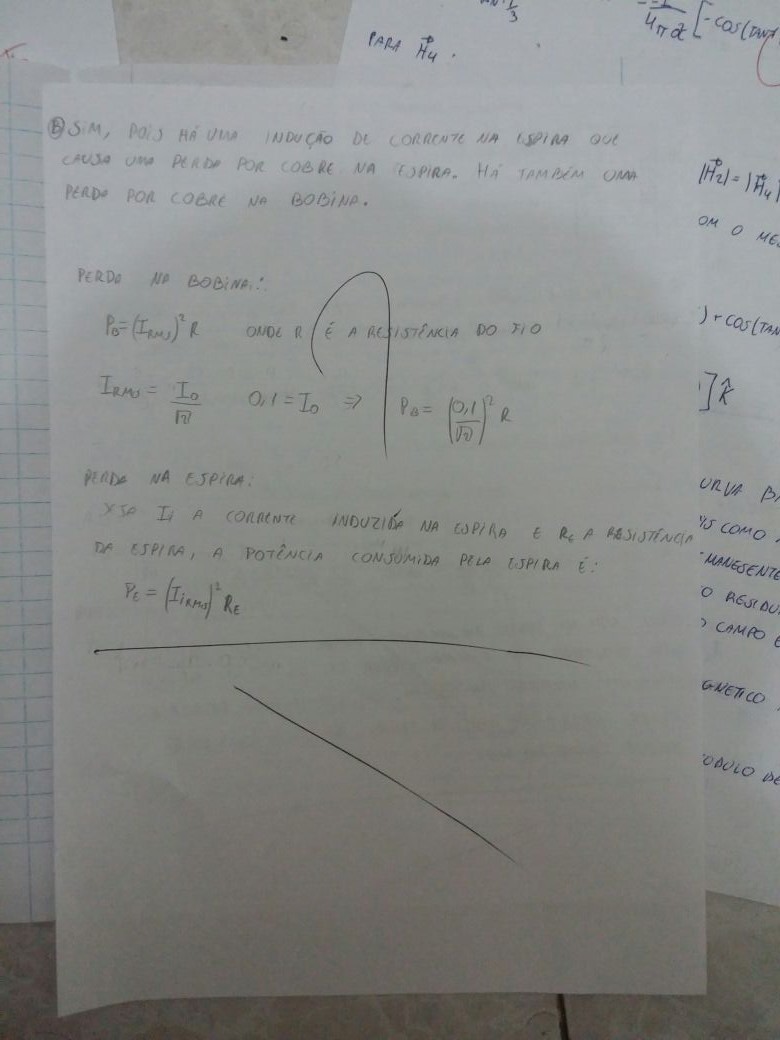 PARA H⃗4.
4πd [-COS(TAN
B SIM, POIS HÁ UMA INDUÇÃO DE CORRENTE NA ESPIRA QUE
CAUSA UMA PERDA POR COBRE NA ESPIRA. HÁ TAMBÉM UMA
PERDA POR COBRE NA BOBINA.
PERDA NA BOBINA:
P_B=(I_RMS)² R ONDE R É A RESISTÊNCIA DO FIO
I_RMS = I_0/√2 0,1 = I_0 ⇒ P_B = (0,1/√2)² R
PERDA NA ESPIRA:
SEJA Ii A CORRENTE INDUZIDA NA ESPIRA E R_E A RESISTÊNCIA
DA ESPIRA, A POTÊNCIA CONSUMIDA PELA ESPIRA É:
P_E = (I_iRMS)² R_E
|H⃗2| = |H⃗4|
OM O MES
) + COS(TAN
] k̂
URVA BA
IS COMO
MANESENTE
O RESIDU
O CAMPO E
GNETICO
ODULO DE